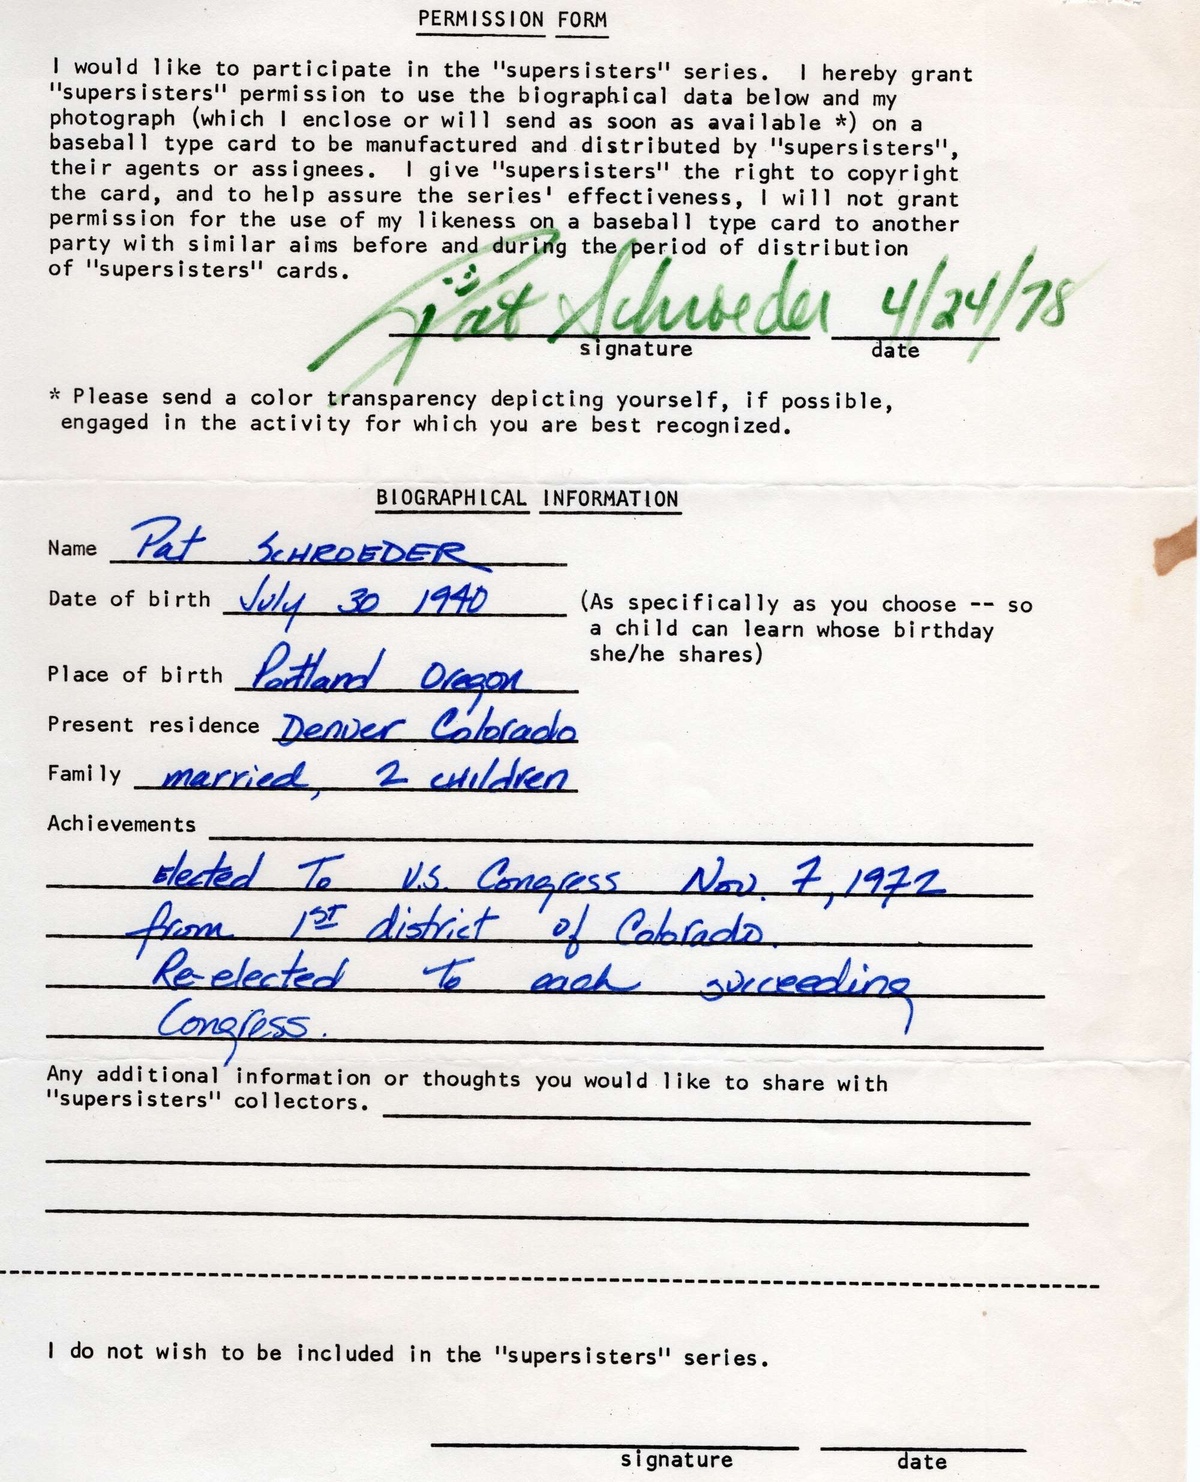 PERMISSION FORM
I would like to participate in the "supersisters" series. I hereby grant
"supersisters" permission to use the biographical data below and my
photograph (which I enclose or will send as soon as available *) on a
baseball type card to be manufactured and distributed by "supersisters",
their agents or assignees. I give "supersisters" the right to copyright
the card, and to help assure the series' effectiveness, I will not grant
permission for the use of my likeness on a baseball type card to another
party with similar aims before and during the period of distribution
of "supersisters" cards.
Pat Schroeder 4/24/78
signature date
* Please send a color transparency depicting yourself, if possible,
engaged in the activity for which you are best recognized.
BIOGRAPHICAL INFORMATION
Name Pat SCHROEDER
Date of birth July 30 1940 (As specifically as you choose -- so
a child can learn whose birthday
she/he shares)
Place of birth Portland Oregon
Present residence Denver Colorado
Family married, 2 children
Achievements
Elected To U.S. Congress Nov. 7, 1972
from 1ST district of Colorado.
Re-elected to each succeeding
Congress.
Any additional information or thoughts you would like to share with
"supersisters" collectors.
I do not wish to be included in the "supersisters" series.
signature date